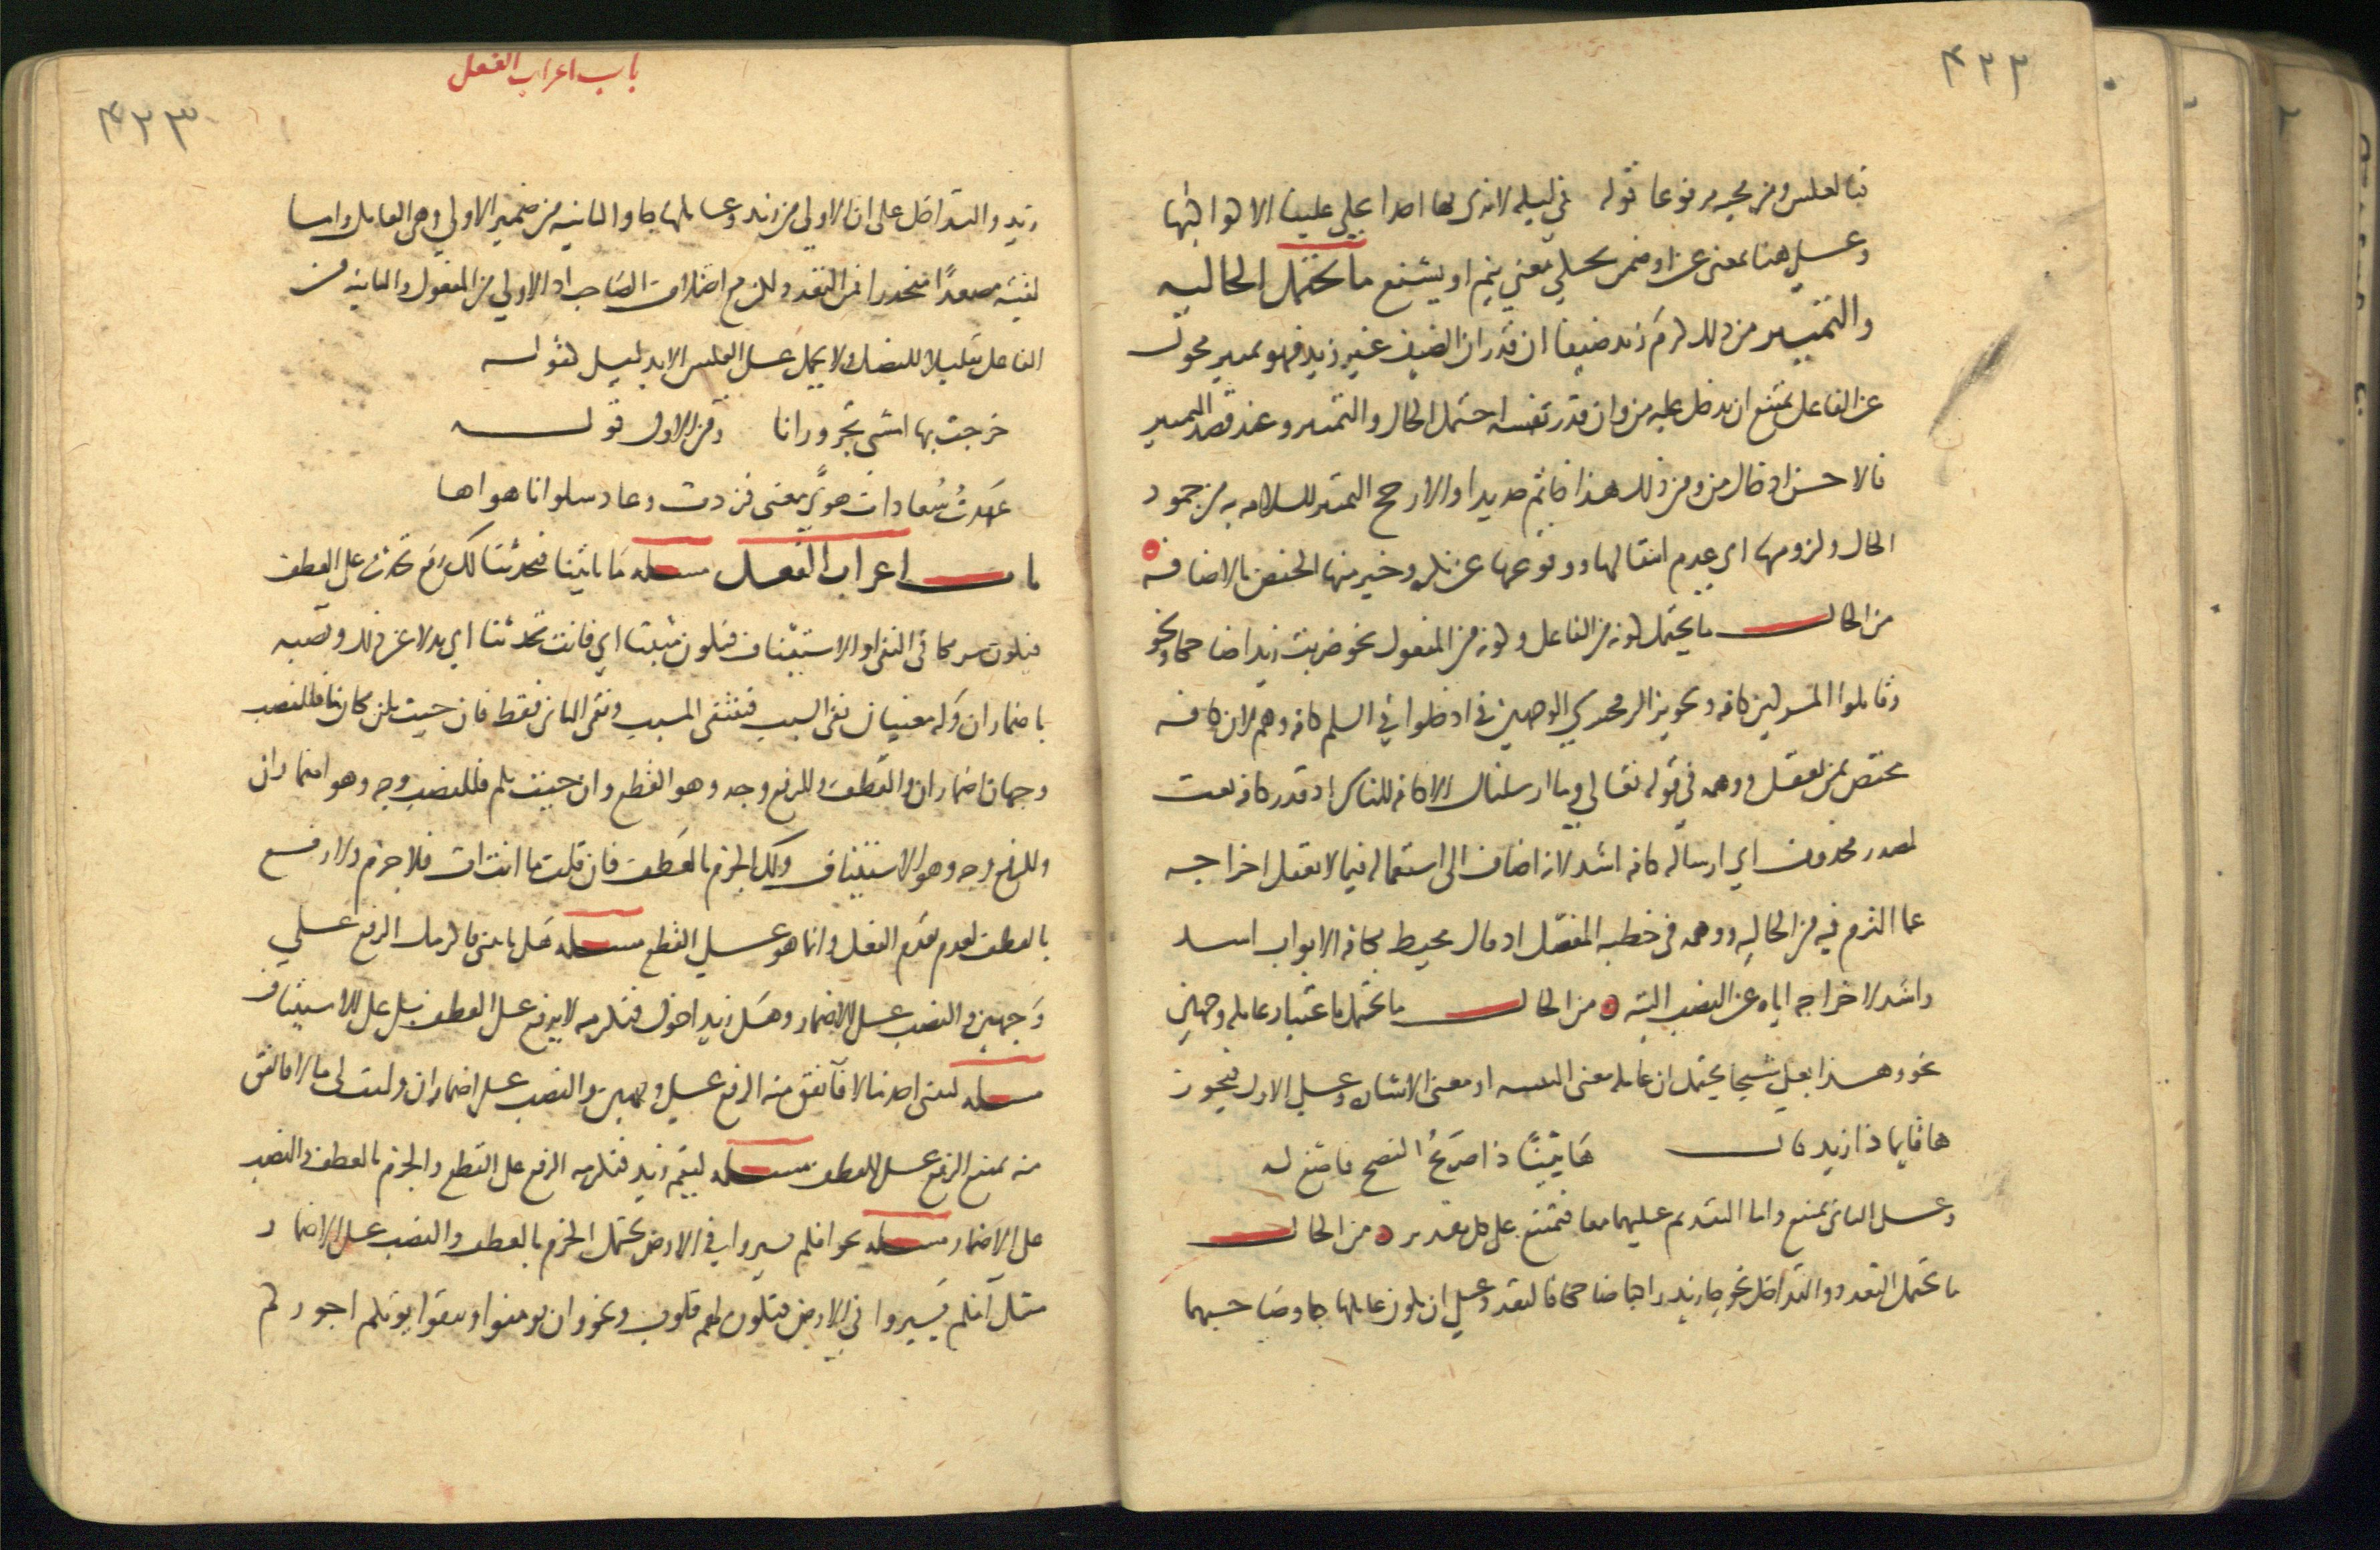 ۴۲۲
فبالعكس ومن مجيه مرفوعا قوله في ليلة لا نرى بها احدا يحكي علينا الا كواكبها
وعلى هنا بمعنى عن او ضمن يحكي معنى ينم او يشنع ما يحتمل الحالية
والتمييز من ذلك كرم زيد ضيفا ان قدر ان الضيف غير زيد فهو تمييز محول
عن الفاعل يمتنع ان يدخل عليه من وان قدر نفسه احتمل الحال والتمييز وعند قصد التمييز
فالاحسن ادخال من ومن ذلك هذا خاتم حديدا والارجح التمييز للسلامة به من جمود
الحال ولزومها اي عدم انتقالها ووقوعها عن نكرة وخير منها الخفض بالاضافة
من الحال ما يحتمل كونه من الفاعل وكونه من المفعول نحو ضربت زيدا ضاحكا ونحو
وقاتلوا المشركين كافة وتجويز الزمخشري الوجهين في ادخلوا في السلم كافة وهم لان كافة
مختص بمن يعقل ووهمه في قوله تعالى وما ارسلناك الا كافة للناس اذ قدر كافة نعت
لمصدر محذوف اي ارساله كافة اشد لانه اضاف الى استعماله فيما لا يعقل اخراجه
عما التزم فيه من الحالية ووهمه في خطبة المفصل اذ قال محيط بكافة الابواب اشد
واشد لاخراجه اياه عن النصب البتة من الحال ما يحتمل باعتبار عامله وجهين
نحو وهذا بعلي شيخا يحتمل ان عامله معنى التنبيه او معنى الاشارة وعلى الاول فيجوز
ها قايما ذا زيد قال ها بيّنًا ذا صريحُ النصح فاصغ له
وعلى الثاني يمتنع واما التقديم عليهما معا فتمتنع على كل تقدير من الحال
ما يحتمل التعدد والتداخل نحو جا زيد راكبا ضاحكا فالتعدد على ان يكون عاملها جا وصاحبهما
باب اعراب الفعل
۴۲۳
زيد والتداخل على ان الاولى من زيد وعاملها جا والثانية من ضمير الاولى وهي العامل واما
لقيته مصعدًا منحدرا فمن التعدد لكن مع اختلاف الصاحب اذ الاولى من المفعول والثانية من
الفاعل تقليلا للفصل ولا يحمل على العكس الا بدليل كقوله
خرجت بها امشي تجر ورانا ومن الاول قوله
عهدتُ سُعاد ذات هوًى معنى فزدت وعاد سلوانا هواها
باب اعراب الفعل مسئلة ما تاتينا فتحدثنا لك رفع تحدث على العطف
فيكون شريكا في النفي او الاستيناف فيكون مثبتا اي فانت تحدثنا اي بدلا عن ذلك ونصبه
باضمار ان وله معنيان نفي السبب فينتفي المسبب ونفي الثاني فقط فان جيت بلن مكان ما فللنصب
وجهان اضمار ان والعطف وللرفع وجه وهو القطع وان جيت بلم فللنصب وجه وهو اضمار ان
وللرفع وجه وهو الاستيناف ولك الجزم بالعطف فان قلت ما انت ات فلا جزم ولا رفع
بالعطف لعدم تقدم الفعل وانما هو على القطع مسئلة هل تاتيني فاكرمك الرفع على
وجهين والنصب على الاضمار وهل زيد اخوك فتكرمه لا يرفع على العطف بل على الاستيناف
مسئلة ليتني اجد مالا فانفق منه الرفع على وجهين والنصب على اضمار ان وليت لي مالا فانفق
منه يمتنع الرفع على العطف مسئلة ليقم زيد فنكرمه الرفع على القطع والجزم بالعطف والنصب
على الاضمار مسئلة نحو افلم يسيروا في الارض يحتمل الجزم بالعطف والنصب على الاضمار
مثل افلم يسيروا في الارض فتكون لهم قلوب ونحو وان تومنوا وتتقوا يوتكم اجوركم